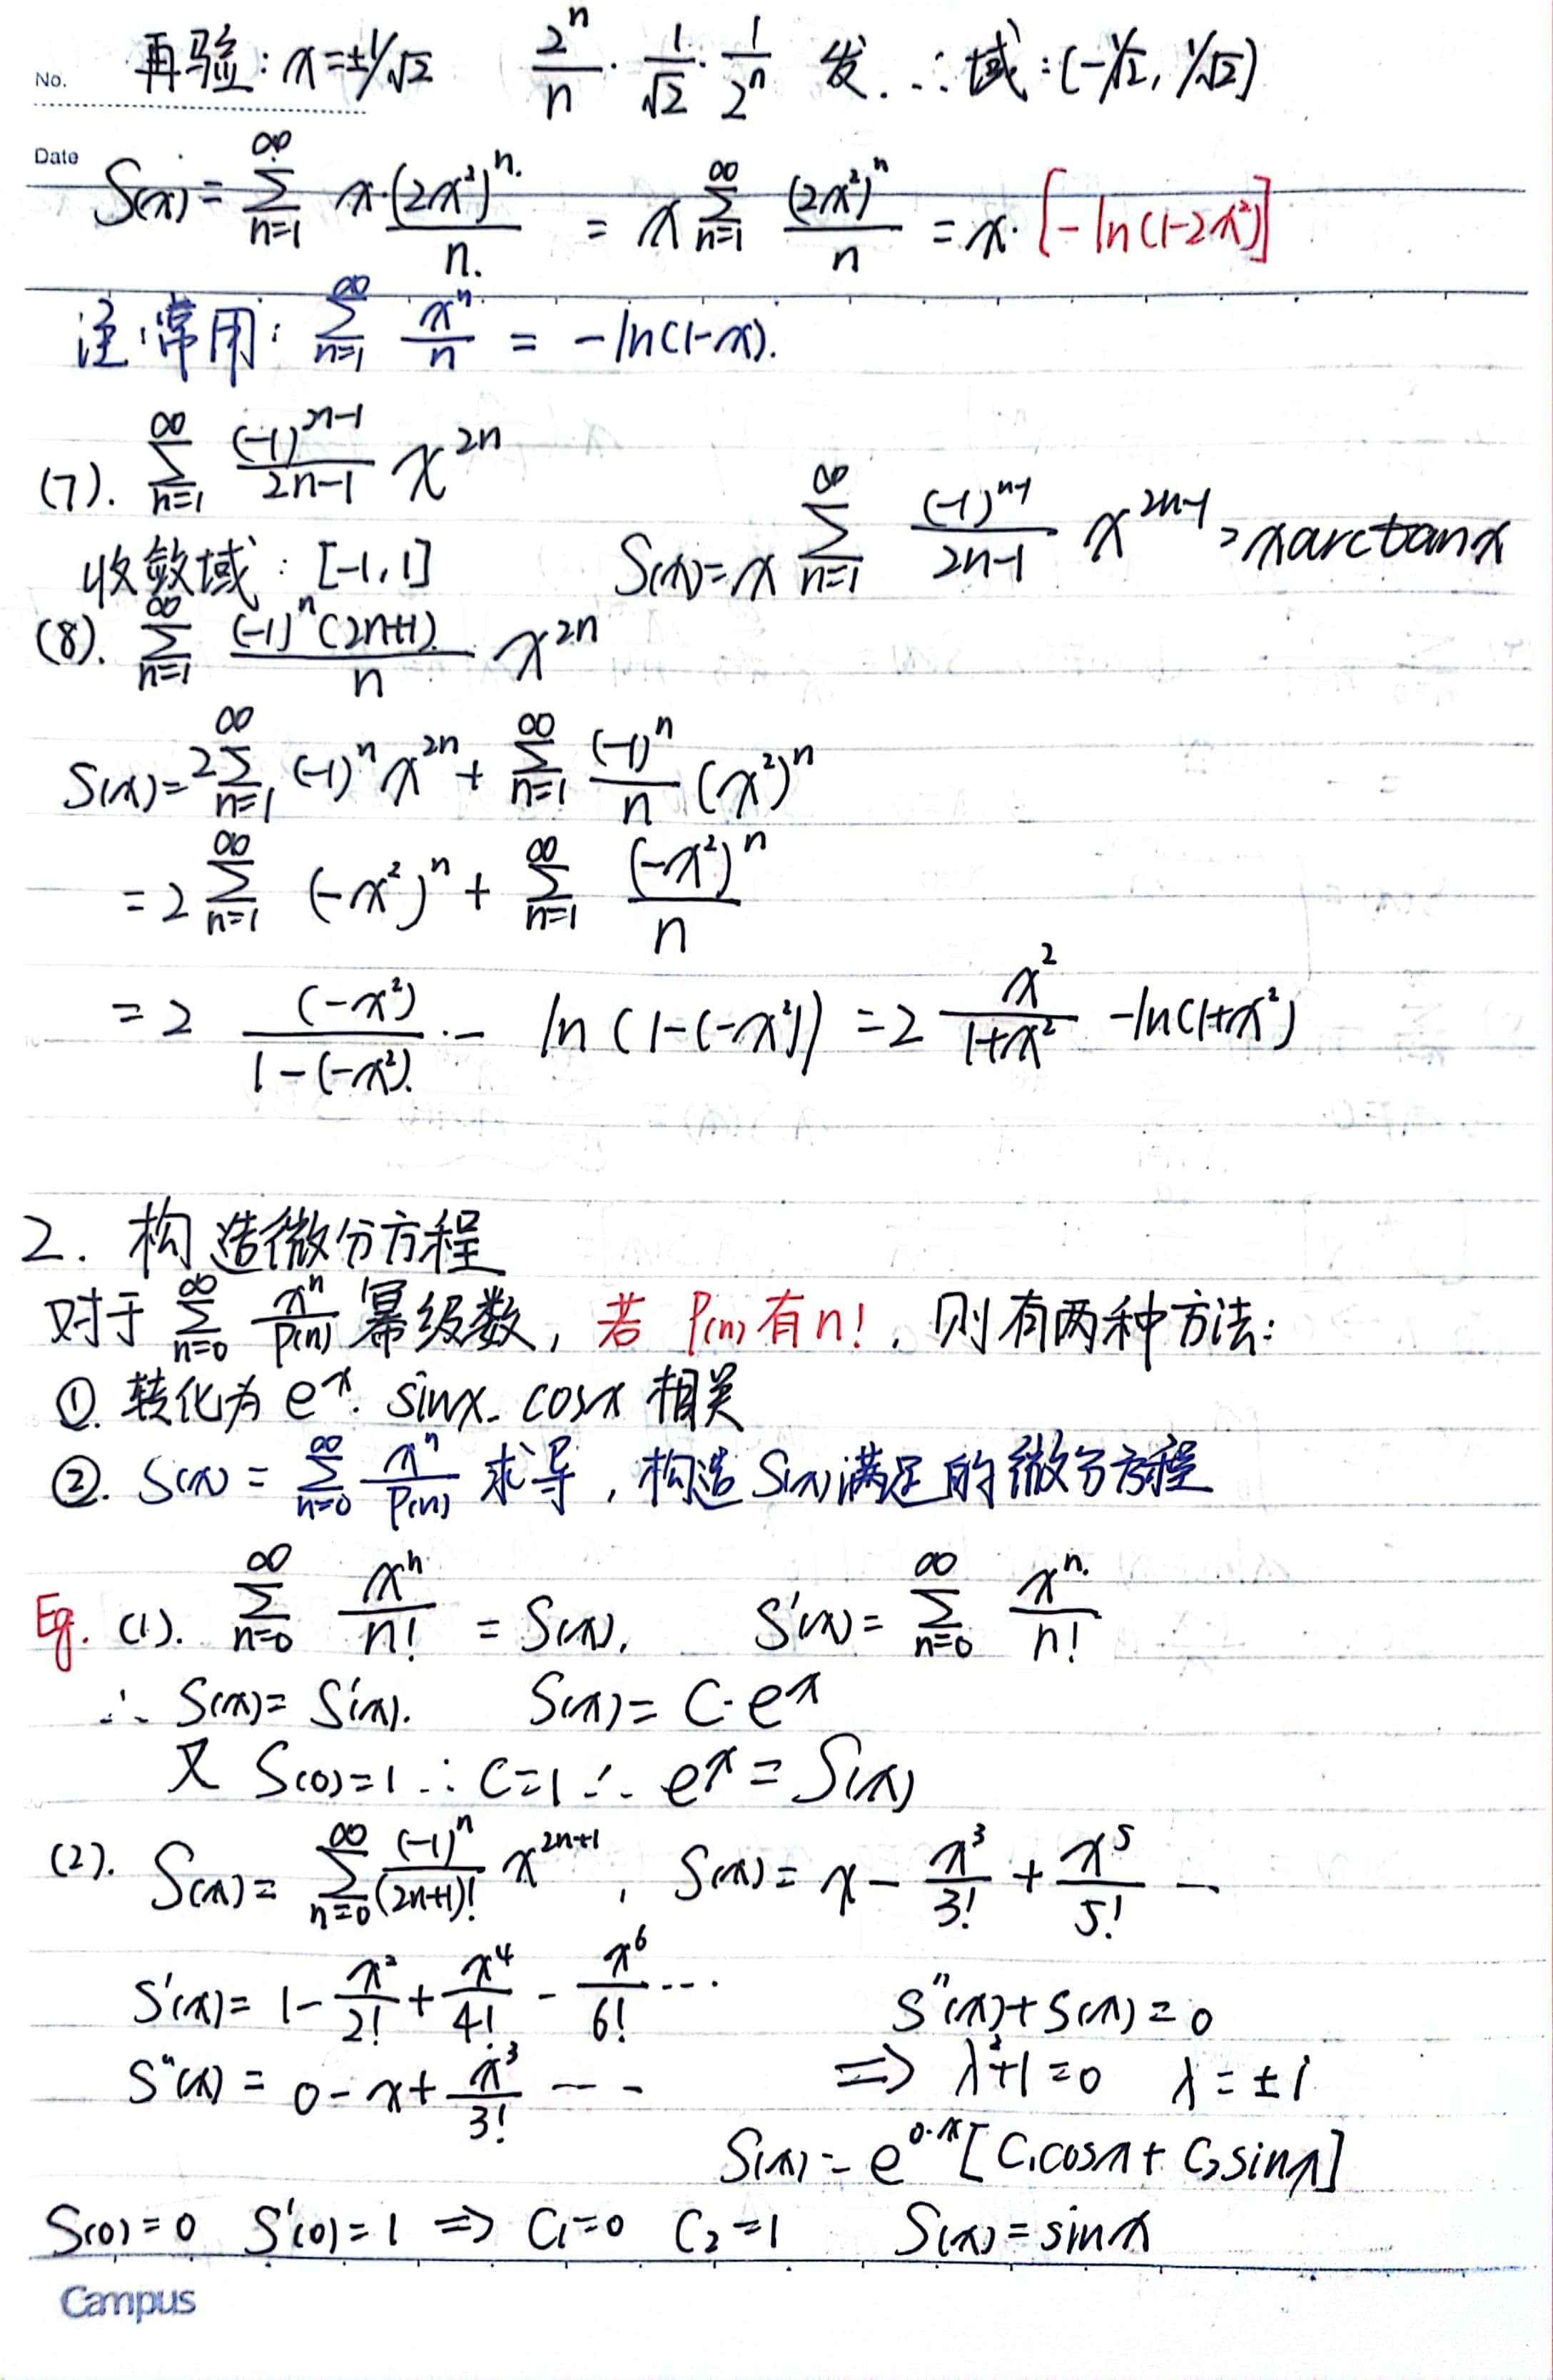 No. 再验: x=±1/√2 2^n/n · 1/√2 · 1/2^n 发. ∴域: (-1/√2, 1/√2)
Date S(x) = ∑_{n=1}^{∞} x·(2x²)^n/n. = x ∑_{n=1}^{∞} (2x²)^n/n = x·[-ln(1-2x²)]
注:常用: ∑_{n=1}^{∞} x^n/n = -ln(1-x).
(7). ∑_{n=1}^{∞} (-1)^{2n-1}/(2n-1) x^{2n}
收敛域: [-1,1] S(x)=x ∑_{n=1}^{∞} (-1)^{n-1}/(2n-1) x^{2n-1} = xarctanx
(8). ∑_{n=1}^{∞} (-1)^n(2n+1)/n x^{2n}
S(x)=2∑_{n=1}^{∞} (-1)^n x^{2n} + ∑_{n=1}^{∞} (-1)^n/n (x²)^n
= 2 ∑_{n=1}^{∞} (-x²)^n + ∑_{n=1}^{∞} (-x²)^n/n
= 2 (-x²)/(1-(-x²)) - ln(1-(-x²)) = 2 x²/(1+x²) -ln(1+x²)
2. 构造微分方程
对于 ∑_{n=0}^{∞} x^n/P(n) 幂级数, 若 P(n)有n!, 则有两种方法:
①. 转化为 e^x. sinx. cosx 相关
②. S(x) = ∑_{n=0}^{∞} x^n/P(n) 求导, 构造S(x)满足的微分方程
Eg. (1). ∑_{n=0}^{∞} x^n/n! = S(x). S'(x)= ∑_{n=0}^{∞} x^n/n!
∴ S(x)= S'(x). S(x)= C·e^x
又 S(0)=1 ∴ C=1 ∴ e^x = S(x)
(2). S(x)= ∑_{n=0}^{∞} (-1)^n/(2n+1)! x^{2n+1}, S(x)= x - x³/3! + x⁵/5! --
S'(x)= 1- x²/2! + x⁴/4! - x⁶/6! ··· S''(x)+S(x)=0
S''(x) = 0-x+ x³/3! --- ⇒ λ²+1=0 λ=±i
S(x)=e^{0·x}[C₁cosx+C₂sinx]
S(0)=0 S'(0)=1 ⇒ C₁=0 C₂=1 S(x)=sinx
Campus